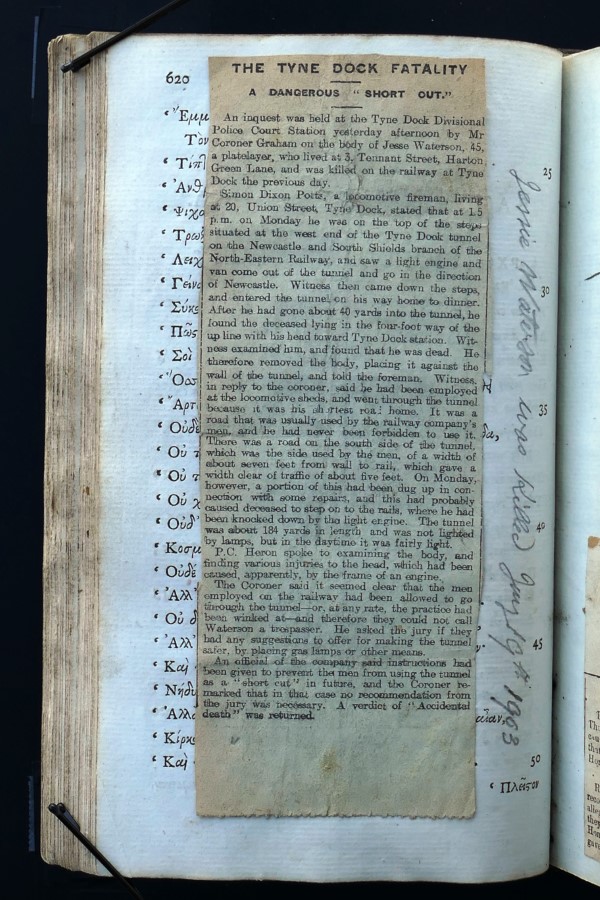 620
THE TYNE DOCK FATALITY
A DANGEROUS "SHORT OUT."
An inquest was held at the Tyne Dock Divisional
Police Court Station yesterday afternoon by Mr
Coroner Graham on the body of Jesse Waterson, 45,
a platelayer, who lived at 3, Tennant Street, Harton
Green Lane, and was killed on the railway at Tyne
Dock the previous day.
Simon Dixon Potts, a locomotive fireman, living
at 20, Union Street, Tyne Dock, stated that at 1.5
p.m. on Monday he was on the top of the steps
situated at the west end of the Tyne Dock tunnel
on the Newcastle and South Shields branch of the
North-Eastern Railway, and saw a light engine and
van come out of the tunnel and go in the direction
of Newcastle. Witness then came down the steps,
and entered the tunnel on his way home to dinner.
After he had gone about 40 yards into the tunnel, he
found the deceased lying in the four-foot way of the
up line with his head toward Tyne Dock station. Wit-
ness examined him, and found that he was dead. He
therefore removed the body, placing it against the
wall of the tunnel, and told the foreman. Witness,
in reply to the coroner, said he had been employed
at the locomotive sheds, and went through the tunnel
because it was his shortest road home. It was a
road that was usually used by the railway company's
men, and he had never been forbidden to use it.
There was a road on the south side of the tunnel,
which was the side used by the men, of a width of
about seven feet from wall to rail, which gave a
width clear of traffic of about five feet. On Monday,
however, a portion of this had been dug up in con-
nection with some repairs, and this had probably
caused deceased to step on to the rails, where he had
been knocked down by the light engine. The tunnel
was about 184 yards in length and was not lighted
by lamps, but in the daytime it was fairly light.
P.C. Heron spoke to examining the body, and
finding various injuries to the head, which had been
caused, apparently, by the frame of an engine.
The Coroner said it seemed clear that the men
employed on the railway had been allowed to go
through the tunnel—or, at any rate, the practice had
been winked at—and therefore they could not call
Waterson a trespasser. He asked the jury if they
had any suggestions to offer for making the tunnel
safer, by placing gas lamps or other means.
An official of the company said instructions had
been given to prevent the men from using the tunnel
as a "short cut" in future, and the Coroner re-
marked that in that case no recommendation from
the jury was necessary. A verdict of "Accidental
death" was returned.
25
30
35
40
45
50
Jessie Waterson was killed 1903
‘ Πλεῖστον